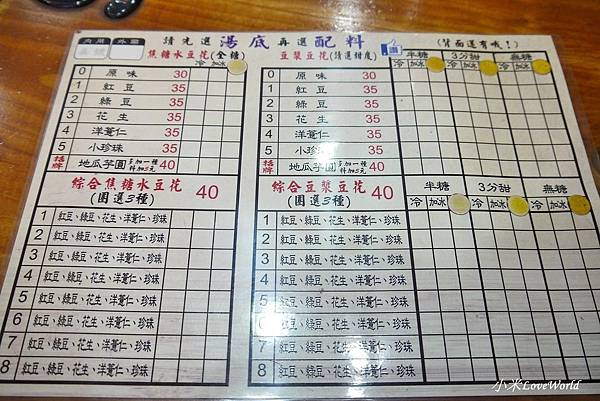 內用 外帶
請先選 湯底 再選 配料 讚 (背面還有哦!)
焦糖水豆花(全糖)
冷 加冰
0 原味 30
1 紅豆 35
2 綠豆 35
3 花生 35
4 洋薏仁 35
5 小珍珠 35
招牌 地瓜芋圓 多加一種料加5元 40
豆漿豆花(請選甜度) 半糖 3分甜 無糖
冷 加冰 冷 加冰 冷 加冰
0 原味 30
1 紅豆 35
2 綠豆 35
3 花生 35
4 洋薏仁 35
5 小珍珠 35
招牌 地瓜芋圓 多加一種料加5元 40
綜合焦糖水豆花 40
(圈選3種)
1 紅豆、綠豆、花生、洋薏仁、珍珠
2 紅豆、綠豆、花生、洋薏仁、珍珠
3 紅豆、綠豆、花生、洋薏仁、珍珠
4 紅豆、綠豆、花生、洋薏仁、珍珠
5 紅豆、綠豆、花生、洋薏仁、珍珠
6 紅豆、綠豆、花生、洋薏仁、珍珠
7 紅豆、綠豆、花生、洋薏仁、珍珠
8 紅豆、綠豆、花生、洋薏仁、珍珠
綜合豆漿豆花 40 半糖 3分甜 無糖
(圈選3種) 冷 加冰 冷 加冰 冷 加冰
1 紅豆、綠豆、花生、洋薏仁、珍珠
2 紅豆、綠豆、花生、洋薏仁、珍珠
3 紅豆、綠豆、花生、洋薏仁、珍珠
4 紅豆、綠豆、花生、洋薏仁、珍珠
5 紅豆、綠豆、花生、洋薏仁、珍珠
6 紅豆、綠豆、花生、洋薏仁、珍珠
7 紅豆、綠豆、花生、洋薏仁、珍珠
8 紅豆、綠豆、花生、洋薏仁、珍珠
小米LoveWorld